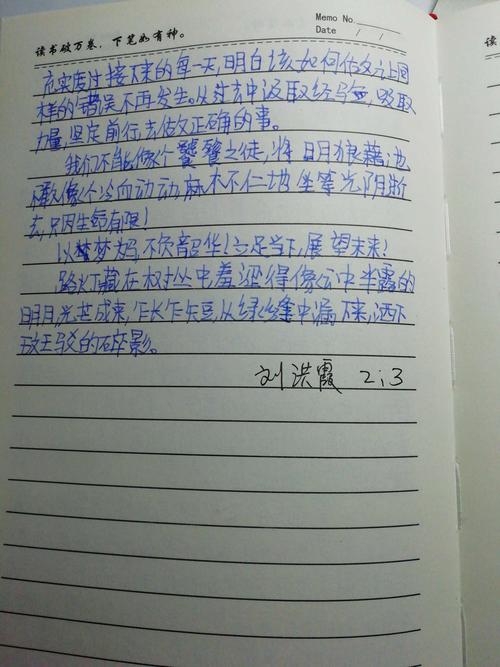 读书破万卷，下笔如有神。
Memo No.
Date / /
充实度过接下来的每一天,明白该如何做文让同
样的错误不再发生。从过去中汲取经验,吸取
力量,坚定前行,去做正确的事。
我们不能像个饕餮之徒,将日月狼藉,也
不能像个冷血动动,麻木不仁地坐等光阴逝
去,只因生命有限!
以梦,不负韶华!立足当下,展望未来!
路灯藏在树丛中羞涩得像云中半露的
明月,光芒成束,乍长乍短,从缝中漏下来,洒下
斑驳的碎影。
刘洪霞 2:3